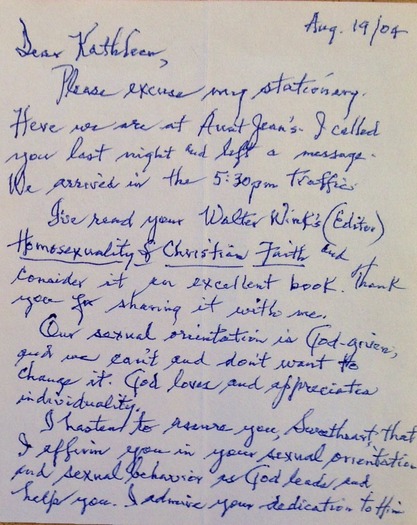 Aug. 19/04
Dear Kathleen,
Please excuse my stationary.
Here we are at Aunt Jean's. I called
you last night and left a message.
We arrived in the 5:30pm traffic.
I've read your Walter Wink's (Editor)
Homosexuality & Christian Faith and
consider it an excellent book. Thank
you for sharing it with me.
Our sexual orientation is God-given,
and we can't and don't want to
change it. God loves and appreciates
individuality.
I hasten to assure you, Sweetheart, that
I affirm you in your sexual orientation
and sexual behavior as God leads and
help you. I admire your dedication to Him